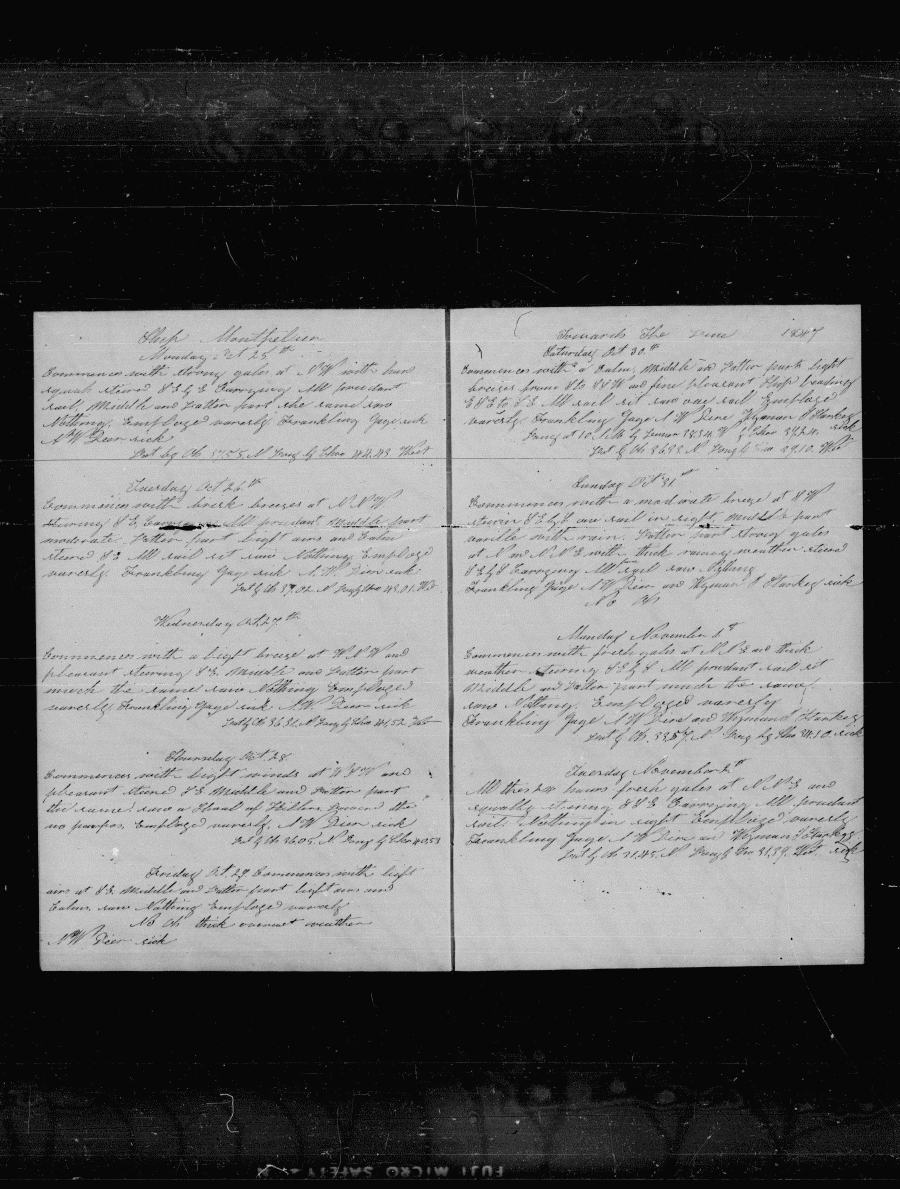 Ship Montpelier
Monday Oct 25th
Commences with strong gales at NW with hard
squals steard SE by E Carrying All prudant
sail, Middle and Latter part the same saw
Nothing. Employed varerly Frankling Gage sick
A W Dier sick
Lat by Ob 37.55 N Long by Chro 44.43 West
Tuesday Oct 26th
Commences with brisk breezes at N N W
steering SE Carrying All prudant Middle part
moderate. Latter part light airs and Calm
steard SE All sail set saw Nothing Employed
varerly. Frankling Gage sick A. W. Dier sick
Lat by Ob 37.02 N Long by Chro 43.01 West
Wednesday Oct 27th
Commences with a light breeze at W N W and
pleasant steering SE Middle and Latter part
much the same saw Nothing Employed
varerly Frankling Gage sick A W Dier sick
Lat by Ob 36.31 N Long by Chro 41.52 West
Thursday Oct 28
Commences with light winds at W S W and
pleasant steard SE Middle and Latter part
the same saw a Shoal of Killers Lowerd
no purpos. Employed varerly. A W Dier sick
Lat by Ob 36.05 N Long by Chro 40.53
Friday Oct. 29 Commences with light
airs at SE Middle and Latter part light airs and
Calms. saw Nothing Employed varerly
No Ob thick overcast weather
A W Dier sick
Towards The Line 1847
Saturday Oct 30th
Commences with a Calm, Middle and Latter part light
breezes from S to SSW and fine pleasant Ship heading
ESE to SE All sail set saw one sail Employed
varerly Frankling Gage A W Dier Wyman S Starkey
sick
Long at 10 AM by Lunar 38.34 W by Chro
Lat by Ob 36.33 N Long by Chro 39.10 West
Sunday Oct 31st
Commences with a moderate breeze at SW
steerin SE by S one sail in sight Middle part
with rain. Latter part strong gales
at N and N N E with thick rainy weather steard
SE by S Carrying All sail saw Nothing
Frankling Gage A W Dier and Wyman S Starkey sick
No Ob
Monday November 1st
Commences with fresh gales at N N E and thick
weather steering SE by S All prudant sail set
Middle and Latter part much the same
saw Nothing. Employed varerly
Frankling Gage A W Dier and Wyman S Starkey
sick
Lat by Ob. 33.57 N Long by Chro 34.10
Tuesday November 2th
All this 24 hours fresh gales at N N E and
squally steering SSE Carrying All prudant
sail. Nothing in sight Employed varerly
Frankling Gage A W Dier and Wyman S Starkey
sick
Lat by Ob 31.45 N Long by Chro 31.39 West
FUJI MICRO SAFETY